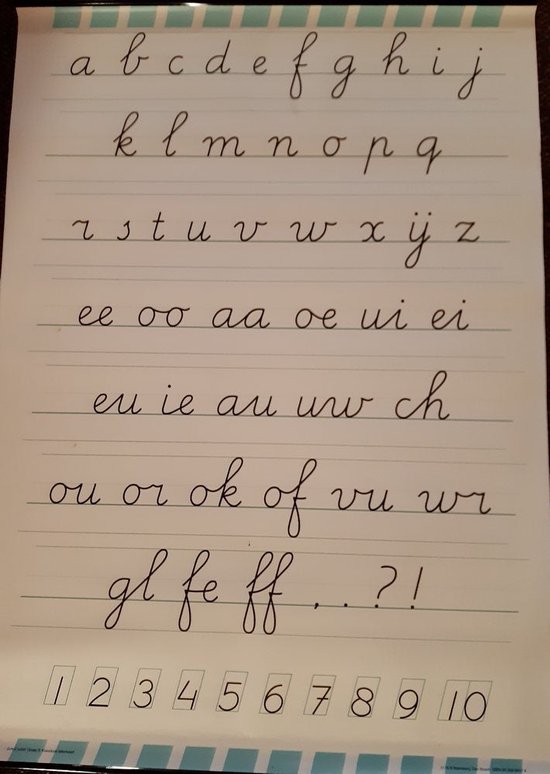 a b c d e f g h i j
k l m n o p q
r s t u v w x ij z
ee oo aa oe ui ei
eu ie au uw ch
ou or ok of vu wr
gl fe ff , . . ? !
1 2 3 4 5 6 7 8 9 10